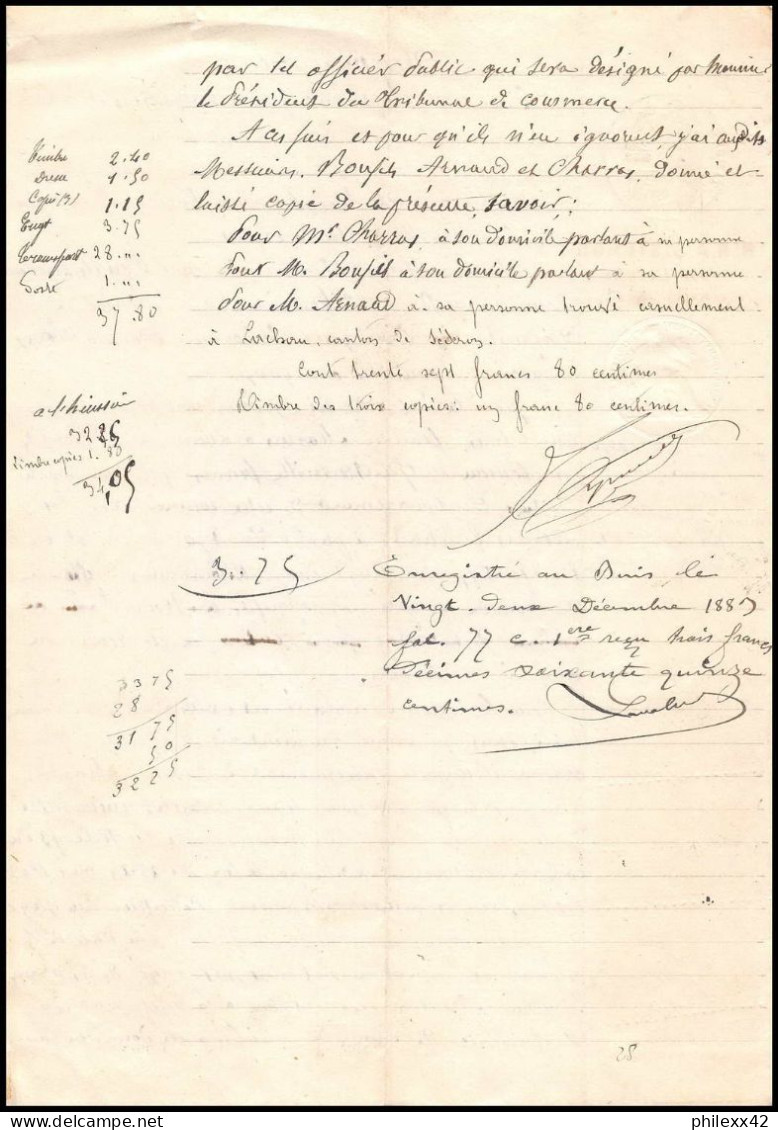 par tel officier public qui sera désigné par Monsieur
le Président du Tribunal de commerce.
A ces fins et pour qu'ils n'en ignorent j'ai audits
Messieurs Bonfils Arnaud et Charras, donné et
laissé copie de la présente, savoir;
Pour Mr. Charras, à son domicile parlant à sa personne
Pour M. Bonfils à son domicile parlant à sa personne
Pour M. Arnaud à sa personne trouvé casuellement
à Lachau, canton de Séderon.
Cout trente sept francs 80 centimes
Timbre des trois copies: un franc 80 centimes.
Timbre 2.40
1.50
Copie (3) 1.15
Engt 3.75
Transport 28. "
Poste 1. "
37.80
a l'huissier
32 25
Timbre copies 1.80
34,05
3.75
Enregistré au Buis le
Vingt-deux Décembre 1887
fol. 77 c. 1ere reçu trois francs
Décimes soixante quinze
centimes.
3375
28
3175
50
3225
28
philexx42